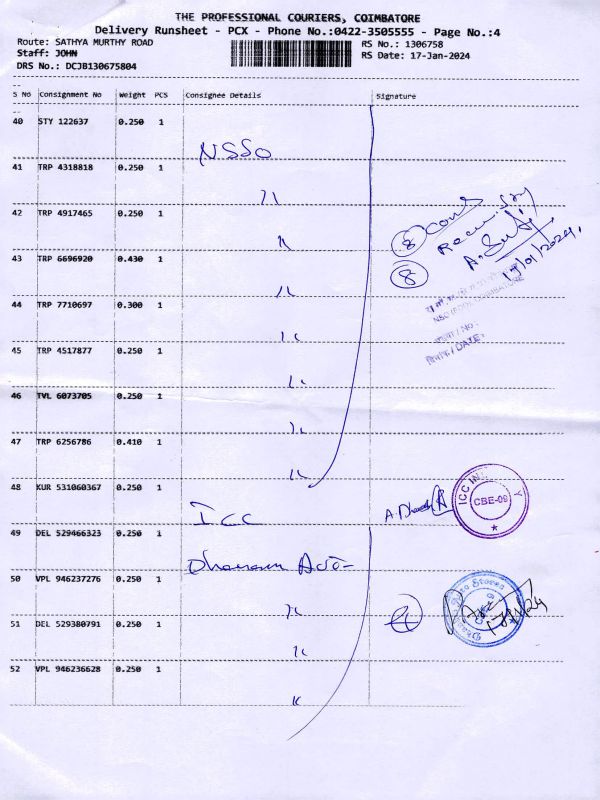 THE PROFESSIONAL COURIERS, COIMBATORE
Delivery Runsheet - PCX - Phone No.:0422-3505555 - Page No.:4
Route: SATHYA MURTHY ROAD RS No.: 1306758
Staff: JOHN RS Date: 17-Jan-2024
DRS No.: DCJB130675804
S No Consignment No Weight PCS Consignee Details Signature
40 STY 122637 0.250 1
NSSO
41 TRP 4318818 0.250 1
"
42 TRP 4917465 0.250 1
"
8 Cons
Receiving
43 TRP 6696920 0.430 1
8
"
44 TRP 7710697 0.300 1
"
45 TRP 4517877 0.250 1
DATE:
"
46 TVL 6073705 0.250 1
"
47 TRP 6256786 0.410 1
"
48 KUR 531060367 0.250 1
ICC
CBE-09
49 DEL 529466323 0.250 1
50 VPL 946237276 0.250 1
"
51 DEL 529380791 0.250 1
4
"
52 VPL 946236628 0.250 1
"